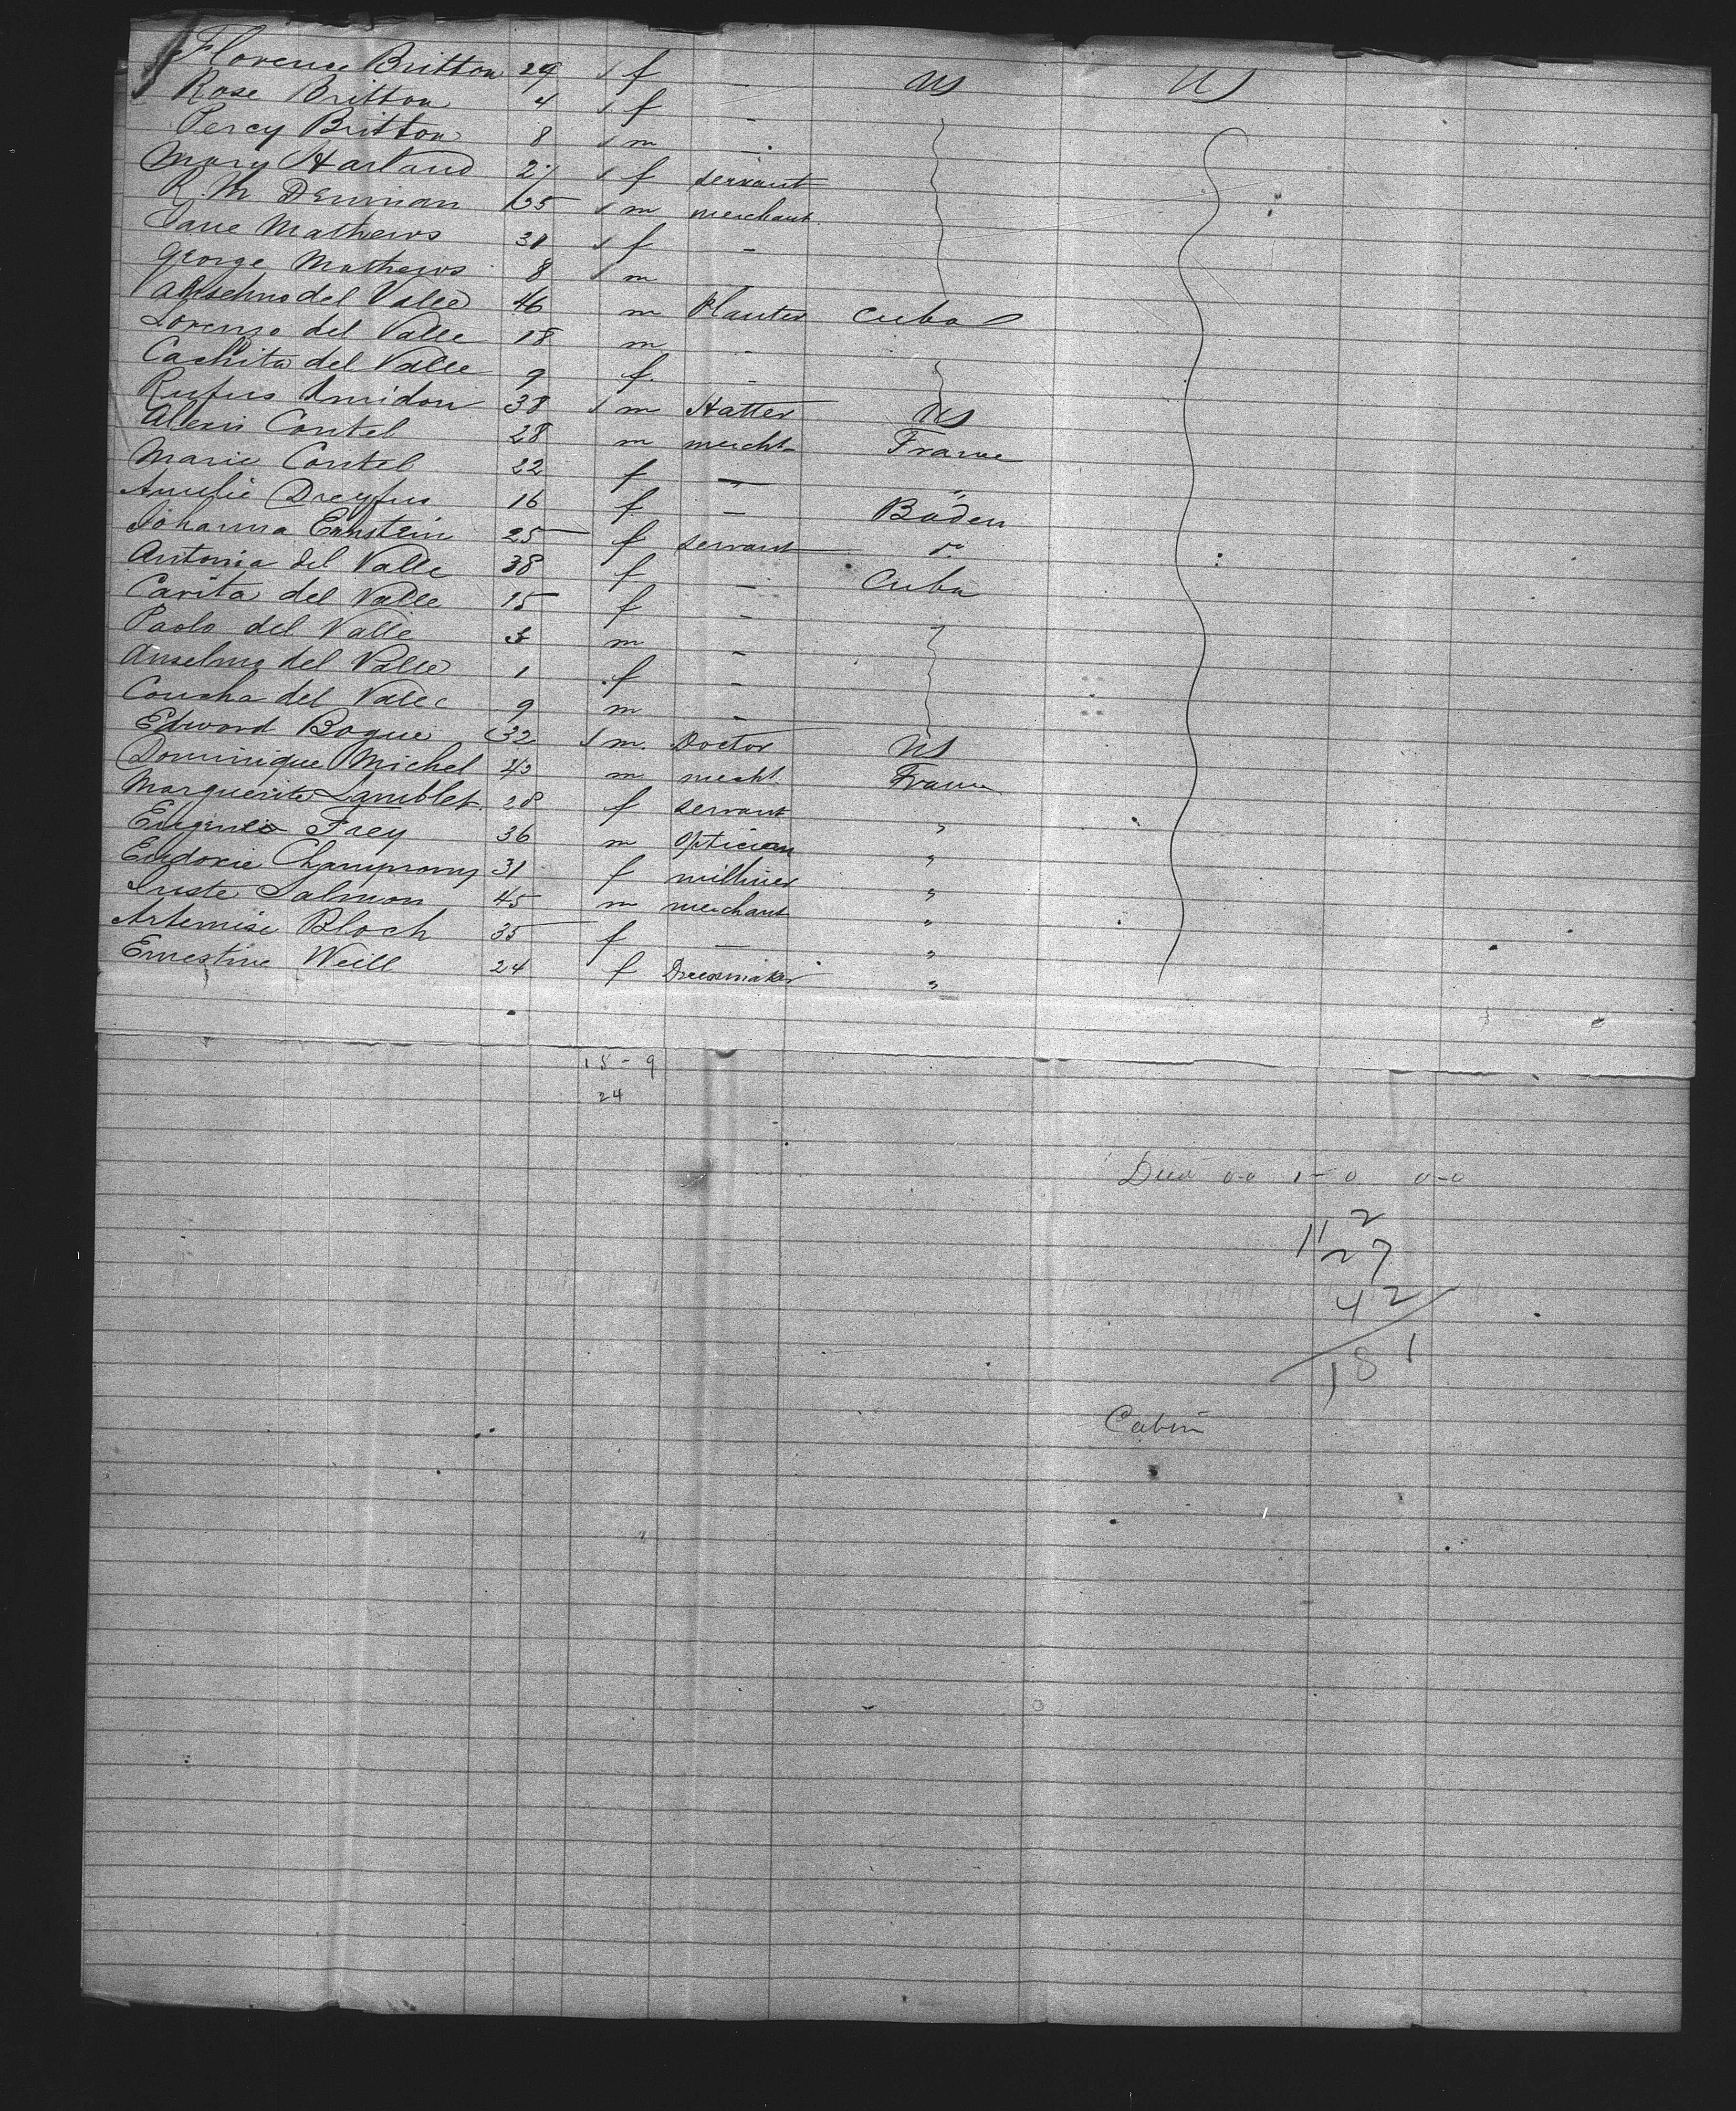 Florence Britton 29 ✓ f - US US
Rose Britton 4 ✓ f -
Percy Britton 8 ✓ m -
Mary Harland 27 ✓ f servant
R. M. Denman 35 ✓ m merchant
Jane Mathews 31 ✓ f -
George Mathews 8 ✓ m
Anselmo del Valle 46 m Planter Cuba
Lorenzo del Valle 18 m -
Cachita del Valle 9 f. -
Rufus Amidon 38 ✓ m Hatter US
Alexis Contel 28 m mercht France
Marie Contel 22 f - "
Amelie Dreyfus 16 f - Baden
Johanna Ernstein 25 f servant do
Antonia del Valle 38 f - Cuba
Carita del Valle 15 f -
Paolo del Valle 3 m -
Anselmo del Valle 1 f -
Concha del Valle 9 m -
Edward Bogue 32 ✓ m. Doctor US
Dominique Michel 43 m mecht France
Marguerite Lamblet 28 f servant "
Eugene Frey 36 m Optician "
Eudoxie 31 f milliner "
Juste Salmon 45 m merchant "
Artemise Bloch 35 f - "
Ernestine Weill 24 f Dressmaker "
18 - 9
24
0-0 1-0 0-0
2
11 27
4 2
18 1
Cabin